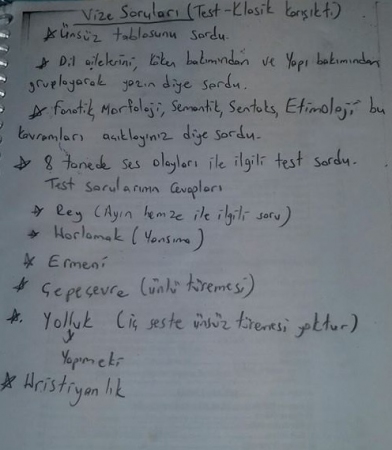 Vize Soruları (Test-Klasik karışıktı)
* Ünsüz tablosunu sordu.
* Dil ailelerini, köken bakımından ve Yapı bakımından
gruplayarak yazın diye sordu.
* Fonetik, Morfoloji, Semantik, Sentaks, Etimoloji bu
kavramları açıklayınız diye sordu.
* 8 tanede ses olayları ile ilgili test sordu.
Test sorularının cevapları
* Rey (Ayın hemze ile ilgili soru)
* Horlamak (Yansıma)
* Ermeni
* Çepeçevre (ünlü türemesi)
* Yolluk (iç seste ünsüz türemesi yoktur)
Yapım eki
* Hristiyanlık